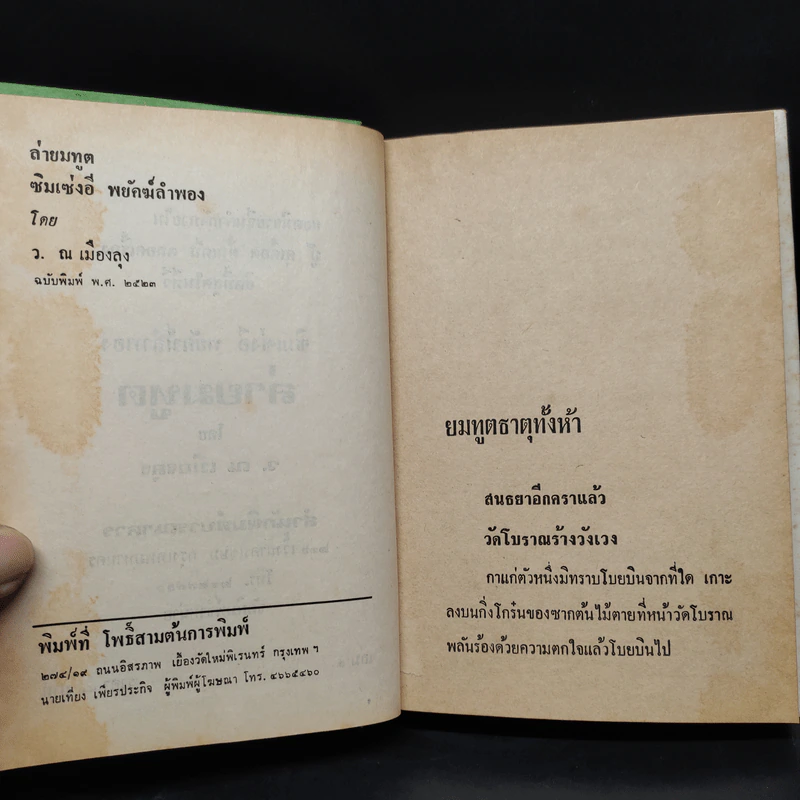 ล่ายมทูต
ซิมเซ่งอี พยัคฆ์ลำพอง
โดย
ว. ณ เมืองลุง
ฉบับพิมพ์ พ.ศ. ๒๕๒๓
พิมพ์ที่ โพธิ์สามต้นการพิมพ์
๒๗๔/๑๙ ถนนอิสรภาพ เยื้องวัดใหม่พิเรนทร์ กรุงเทพ ฯ
นายเที่ยง เพียรประกิจ ผู้พิมพ์ผู้โฆษณา โทร. ๔๖๖๕๔๖๐
ยมทูตธาตุทั้งห้า
สนธยาอีกคราแล้ว
วัดโบราณร้างวังเวง
กาแก่ตัวหนึ่งมิทราบโบยบินจากที่ใด เกาะ
ลงบนกิ่งโกร๋นของซากต้นไม้ตายที่หน้าวัดโบราณ
พลันร้องด้วยความตกใจแล้วโบยบินไป